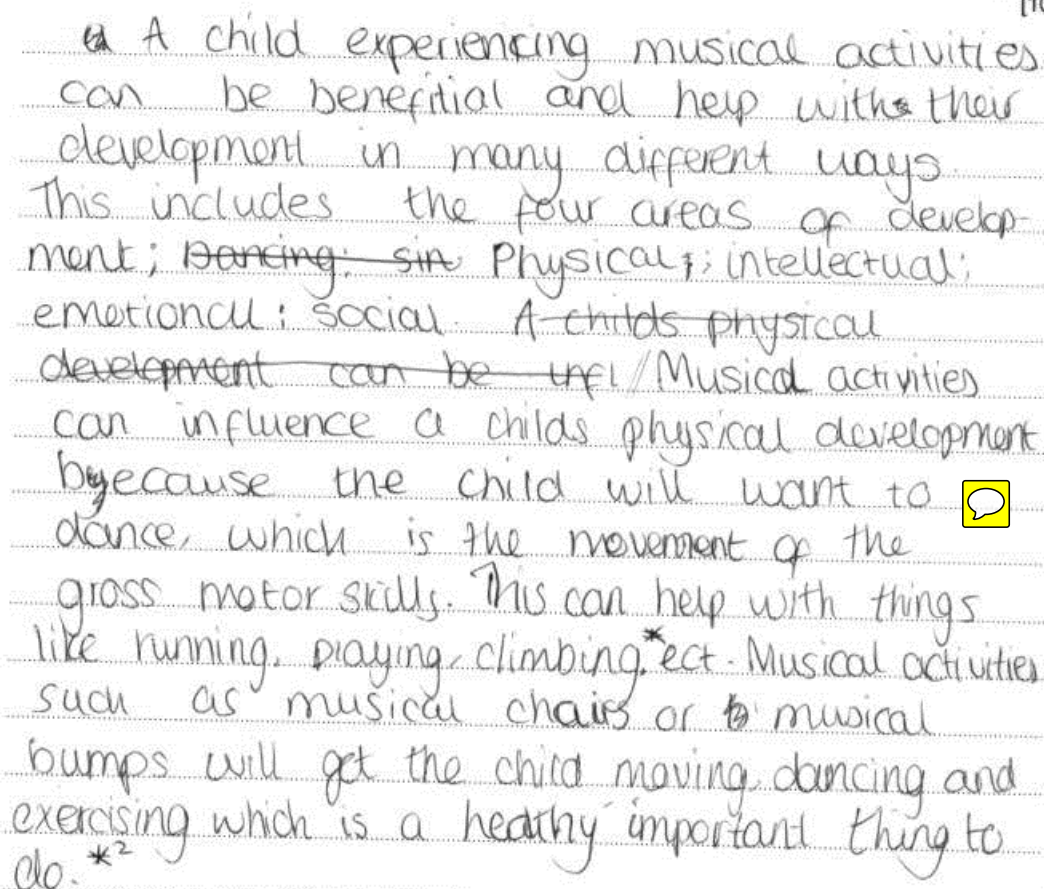 A child experiencing musical activities
can be benefitial and help with their
development in many different ways.
This includes the four areas of develop-
ment; Dancing; sin Physical; intellectual;
emotional; social. A childs physical
development can be infl // Musical activities
can influence a childs physical development
because the child will want to
dance, which is the movement of the
gross motor skills. This can help with things
like running, playing, climbing.* ect. Musical activities
such as musical chairs or musical
bumps will get the child moving, dancing and
exercising which is a healthy important thing to
do. *²